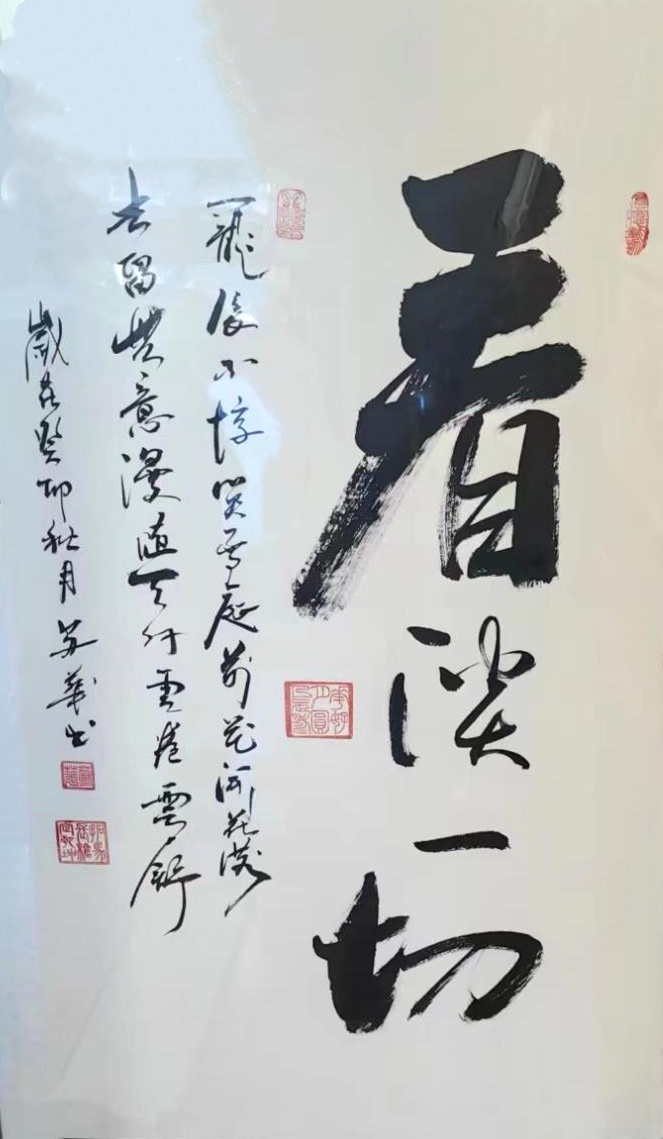 看淡一切
寵辱不惊闲看庭前花開花落
去留无意漫随天外雲卷雲舒
歲在癸卯秋月苏華书